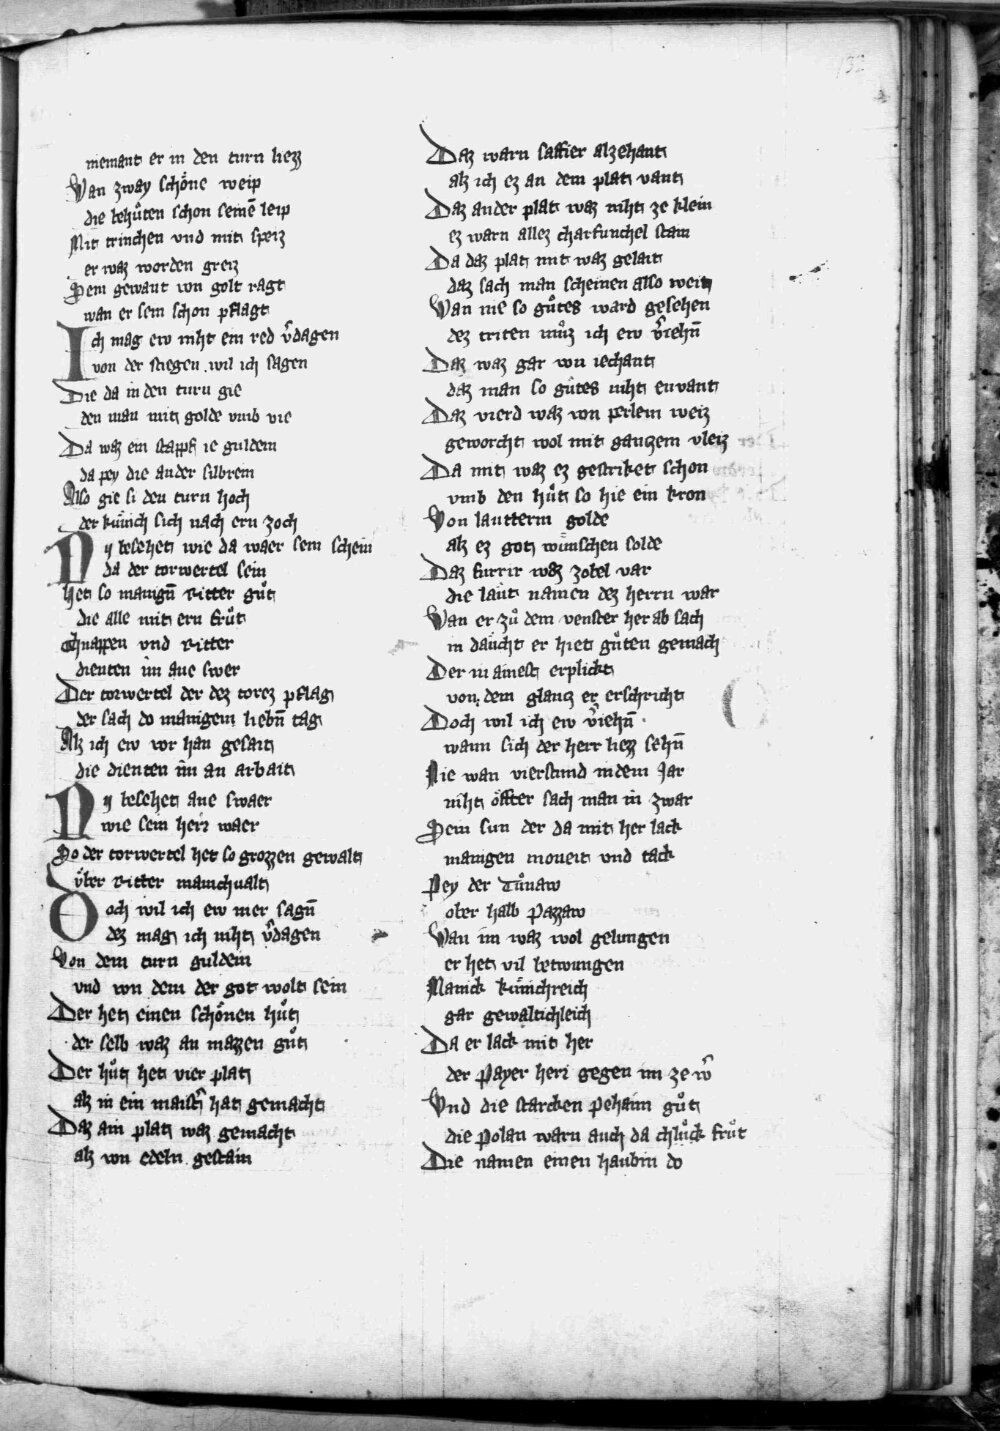 niemant er in den turn liezz
Wan zway schone weip
die behuͤten schon seinē leip
Mit trinchen vnd mit speiz
er waz worden greiz
Sein gewant von golt ragt
wan er sein schon pflagt
Ich mag ew niht ein red v̄dagen
von der stiegen wil ich sagen
Die da in den turn gie
den man mit golde vmb vie
Da waz ein stapff ie guldein
da pey die ander silbrein
Also gie si den turn hoch
der kuͤnich sich nach ern zoch
Ny besehet wie da waer sein schein
da der torwertel sein
het so manigē ritter guͤt
die alle mit ern fruͤt
Chnappen vnd ritter
dienten im ane swer
Der torwertel der dez torez pflag
der sach do manigem liebē tag
Alz ich ew vor han gesait
die dienten im an arbait
Ny besehet ane swaer
wie sein herr waer
So der torwertel het so grozzen gewalt
vͤber ritter manichualt
Doch wil ich ew mer sagē
dez mag ich niht v̄dagen
Von dem turn guldein
vnd von dem der got wolt sein
Der het einen schoͤnen huͤt
der selb waz an mazzen guͤt
Der huͤt het vier plat
alz in ein maist̄ hat gemacht
Daz ain plat waz gemacht
alz von edeln gestain
Daz warn saffier alzehant
alz ich ez an dem plat vant
Daz ander plat waz niht ze klein
ez warn allez charfunchel stain
Da daz plat mit waz gelait
daz sach man scheinen also weit
Wan nie so guͤtes ward gesehen
dez triten muͤz ich ew v̄iehē
Daz waz gar von iechant
daz man so guͤtes niht envant
Daz vierd waz von perlein weiz
geworcht wol mit ganczem vleiz
Da mit waz ez gestriket schon
vmb den huͤt so hie ein kron
Von lautterm golde
alz ez got wuͤnschen solde
Daz furrir waz zobel var
die laut namen dez herrn war
Wan er zuͦ dem venster her ab sach
in dauͤcht er hiet guͤten gemach
Der in ainest erplickt
von dem glancz er erschricht
Doch wil ich ew v̄iehē
wann sich der herr liezz sehē
Nie wan vierstund in dem Jar
niht oͤffter sach man in zwar
Sein sun der da mit her lack
manigen moneit vnd tack
Pey der Tuͦnaw
ober halb Pazzaw
Wan im waz wol gelungen
er het vil betwungen
Manick kuͤnichreich
gar gewaltichleich
Da er lack mit her
der Payer herr gegen im ze w̄
Vnd die starcken pehaim guͤt
die Polan warn auch da chluͤck fruͤt
Die namen einen haubtm do